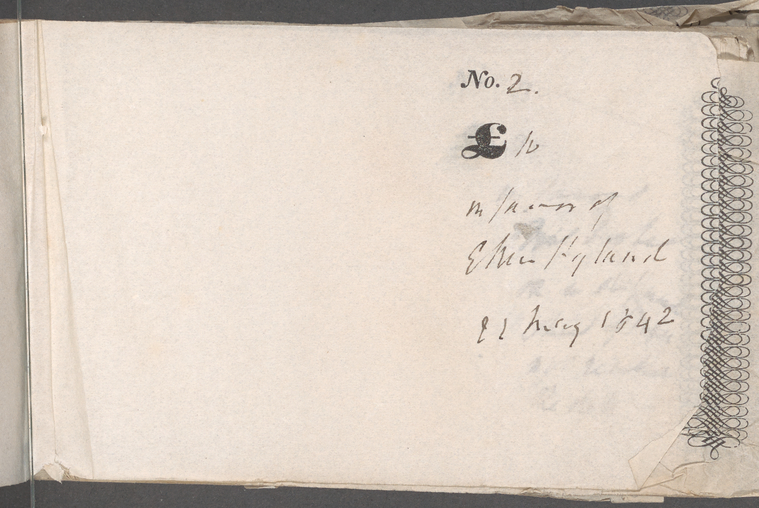 No. 2.
£ 10
in favor of
Ellen Hyland
21 May 1842